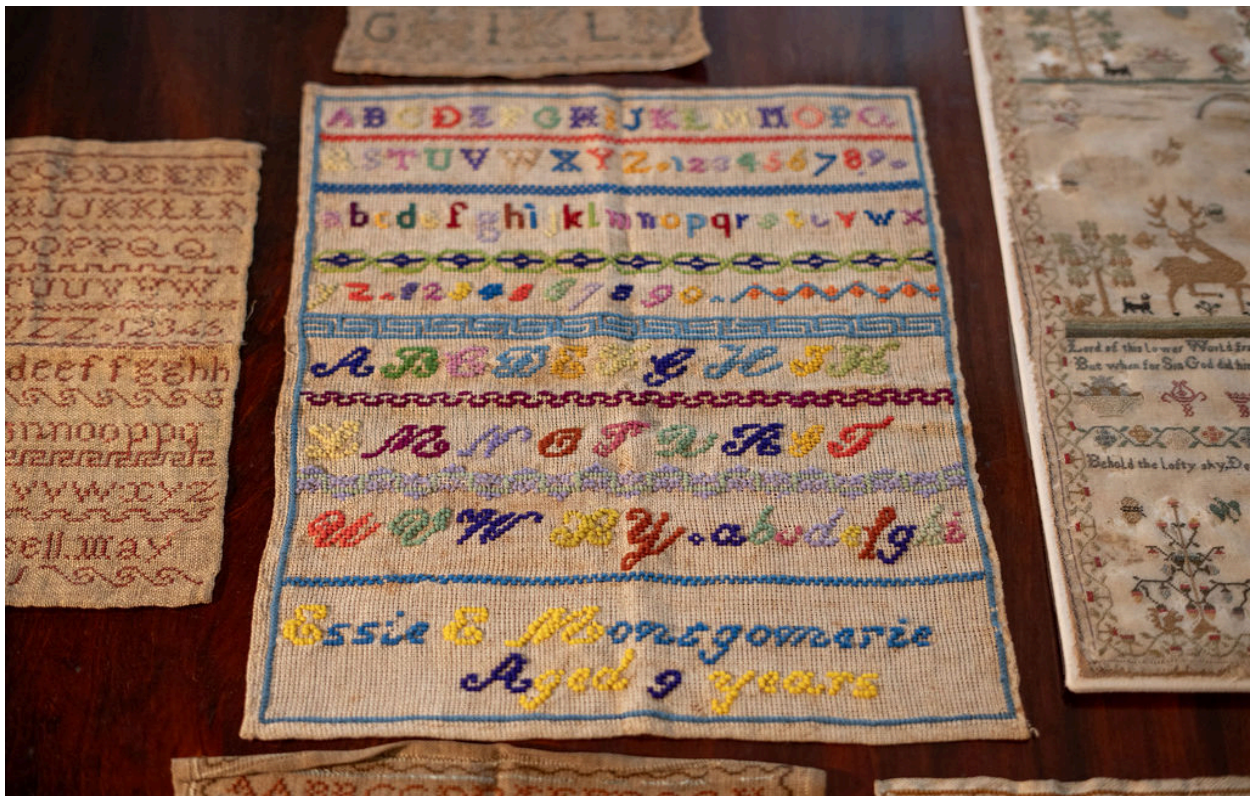 G I L
A B C D E F G H I J K L M M O P Q
R S T U V W X Y Z . 1 2 3 4 5 6 7 8 9 0
a b c d e f g h i j k l m n o p q r s t u v w x
y z . 1 2 3 4 5 6 7 8 9 0 .
A B C D E F G H I K
L M N O P Q R S T
U V W X Y . a b c d e f g h i
Essie E Montgomerie
Aged 9 years
C C D D E E E
I J J K K L L
O O P P Q Q
U U V V W
Z Z 1 2 3 4 5
d e e f f g g h h
n n o o p p q
v v w x y z
sell may
Lord of this lower World
But when for Sin God did
Behold the lofty sky, D